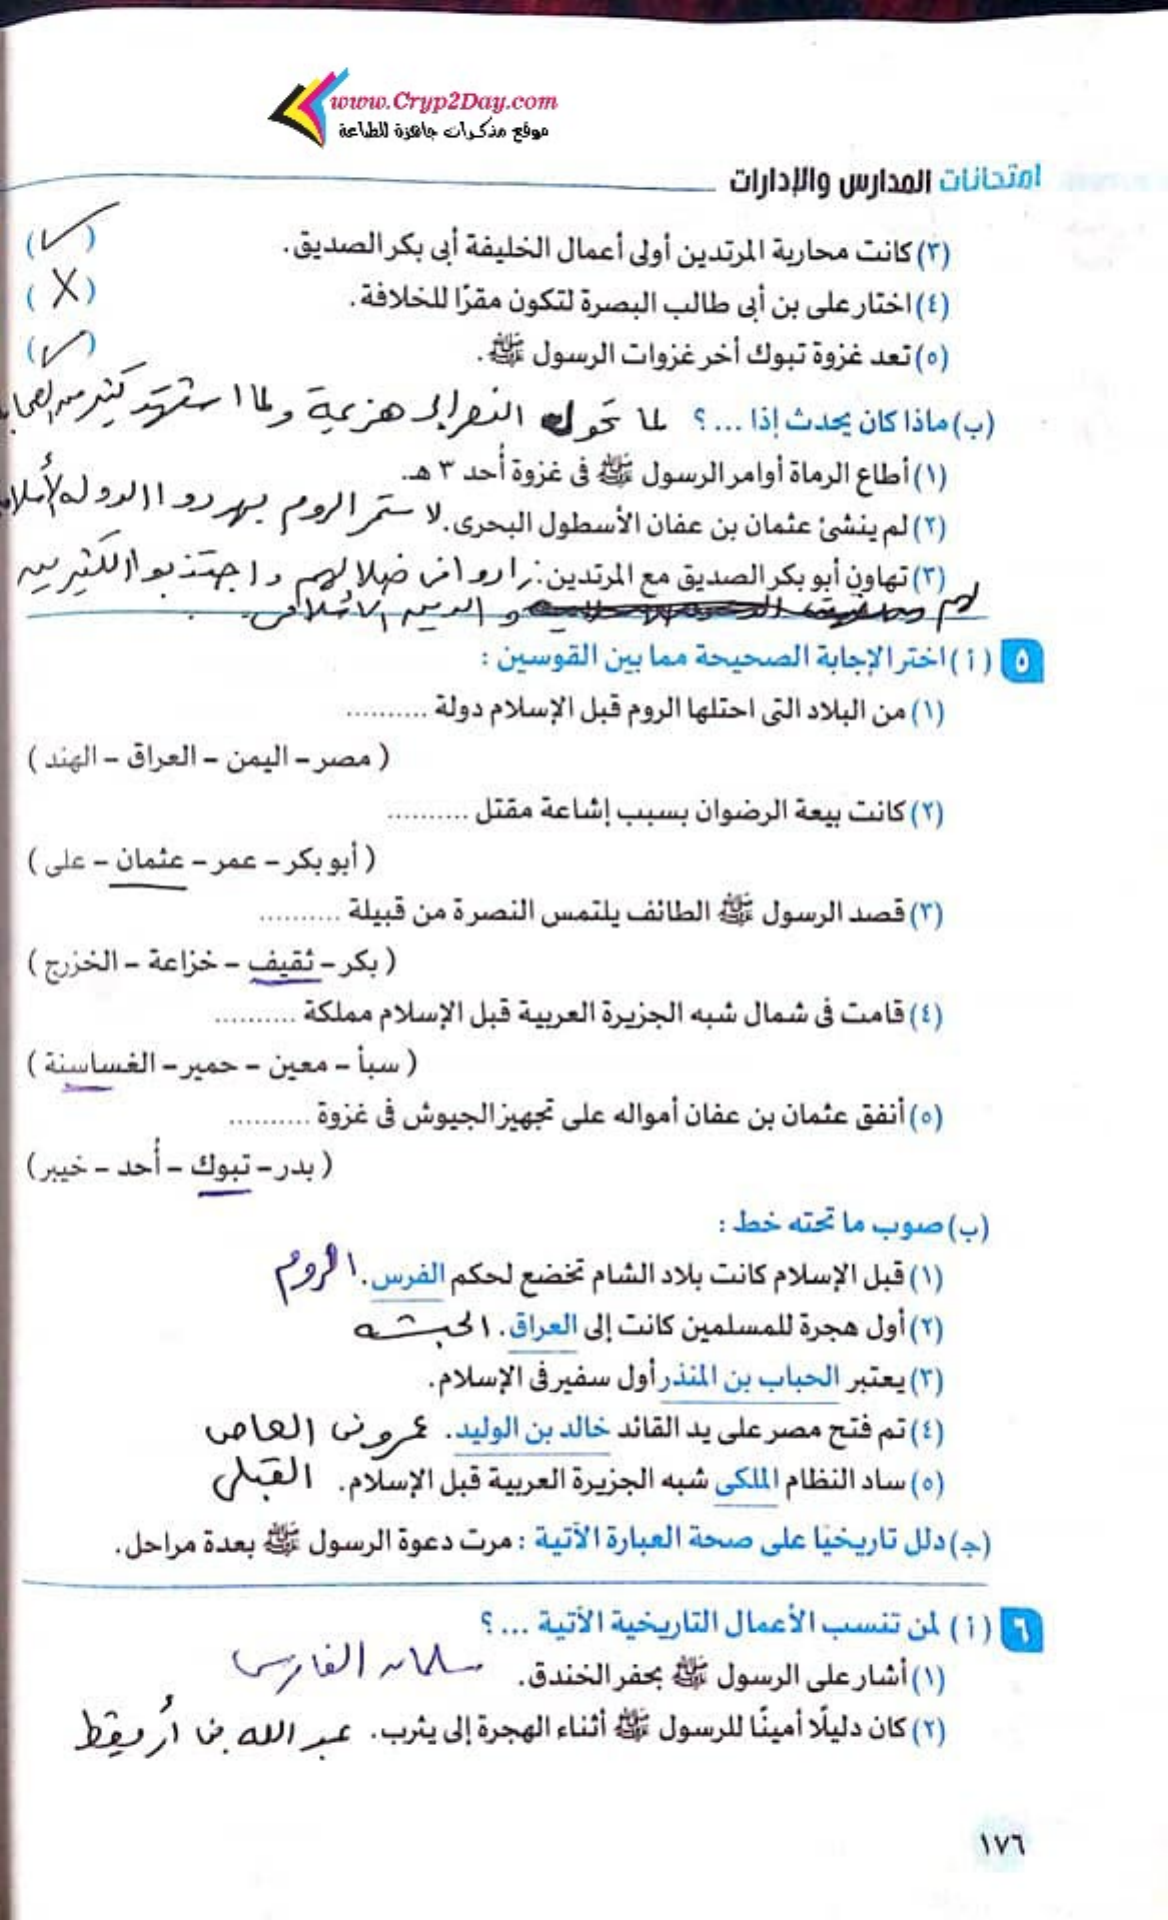 www.Cryp2Day.com
موقع مذكرات جاهزة للطباعة
امتحانات المدارس والإدارات
(٣) كانت محاربة المرتدين أولى أعمال الخليفة أبى بكر الصديق. (✓)
(٤) اختار على بن أبى طالب البصرة لتكون مقرًا للخلافة. (X)
(٥) تعد غزوة تبوك أخر غزوات الرسول ﷺ. (✓)
(ب) ماذا كان يحدث إذا ... ؟ لما تحول النصر إلى هزيمة ولما استشهد كثير من الصحابة
(١) أطاع الرماة أوامر الرسول ﷺ فى غزوة أُحد ٣ هـ.
(٢) لم ينشئ عثمان بن عفان الأسطول البحرى. لاستمر الروم يهددوا الدولة الأسلامية
(٣) تهاون أبو بكر الصديق مع المرتدين: زادوا فى ضلالهم واجتذبوا الكثير من
لهم والدين الأسلامى.
٥ (أ) اختر الإجابة الصحيحة مما بين القوسين :
(١) من البلاد التى احتلها الروم قبل الإسلام دولة ..........
( مصر – اليمن – العراق – الهند )
(٢) كانت بيعة الرضوان بسبب إشاعة مقتل ..........
( أبو بكر – عمر – عثمان – على )
(٣) قصد الرسول ﷺ الطائف يلتمس النصرة من قبيلة ..........
( بكر – ثقيف – خزاعة – الخزرج )
(٤) قامت فى شمال شبه الجزيرة العربية قبل الإسلام مملكة ..........
( سبأ – معين – حمير – الغساسنة )
(٥) أنفق عثمان بن عفان أمواله على تجهيز الجيوش فى غزوة ..........
( بدر – تبوك – أُحد – خيبر )
(ب) صوب ما تحته خط :
(١) قبل الإسلام كانت بلاد الشام تخضع لحكم الفرس. الروم
(٢) أول هجرة للمسلمين كانت إلى العراق. الحبشه
(٣) يعتبر الحباب بن المنذر أول سفير فى الإسلام.
(٤) تم فتح مصر على يد القائد خالد بن الوليد. عمرو بن العاص
(٥) ساد النظام الملكى شبه الجزيرة العربية قبل الإسلام. القبلى
(جـ) دلل تاريخيًا على صحة العبارة الآتية : مرت دعوة الرسول ﷺ بعدة مراحل.
٦ (أ) لمن تنسب الأعمال التاريخية الآتية ... ؟
(١) أشار على الرسول ﷺ بحفر الخندق. سلمان الفارسى
(٢) كان دليلًا أمينًا للرسول ﷺ أثناء الهجرة إلى يثرب. عبد الله بن أريقط
١٧٦